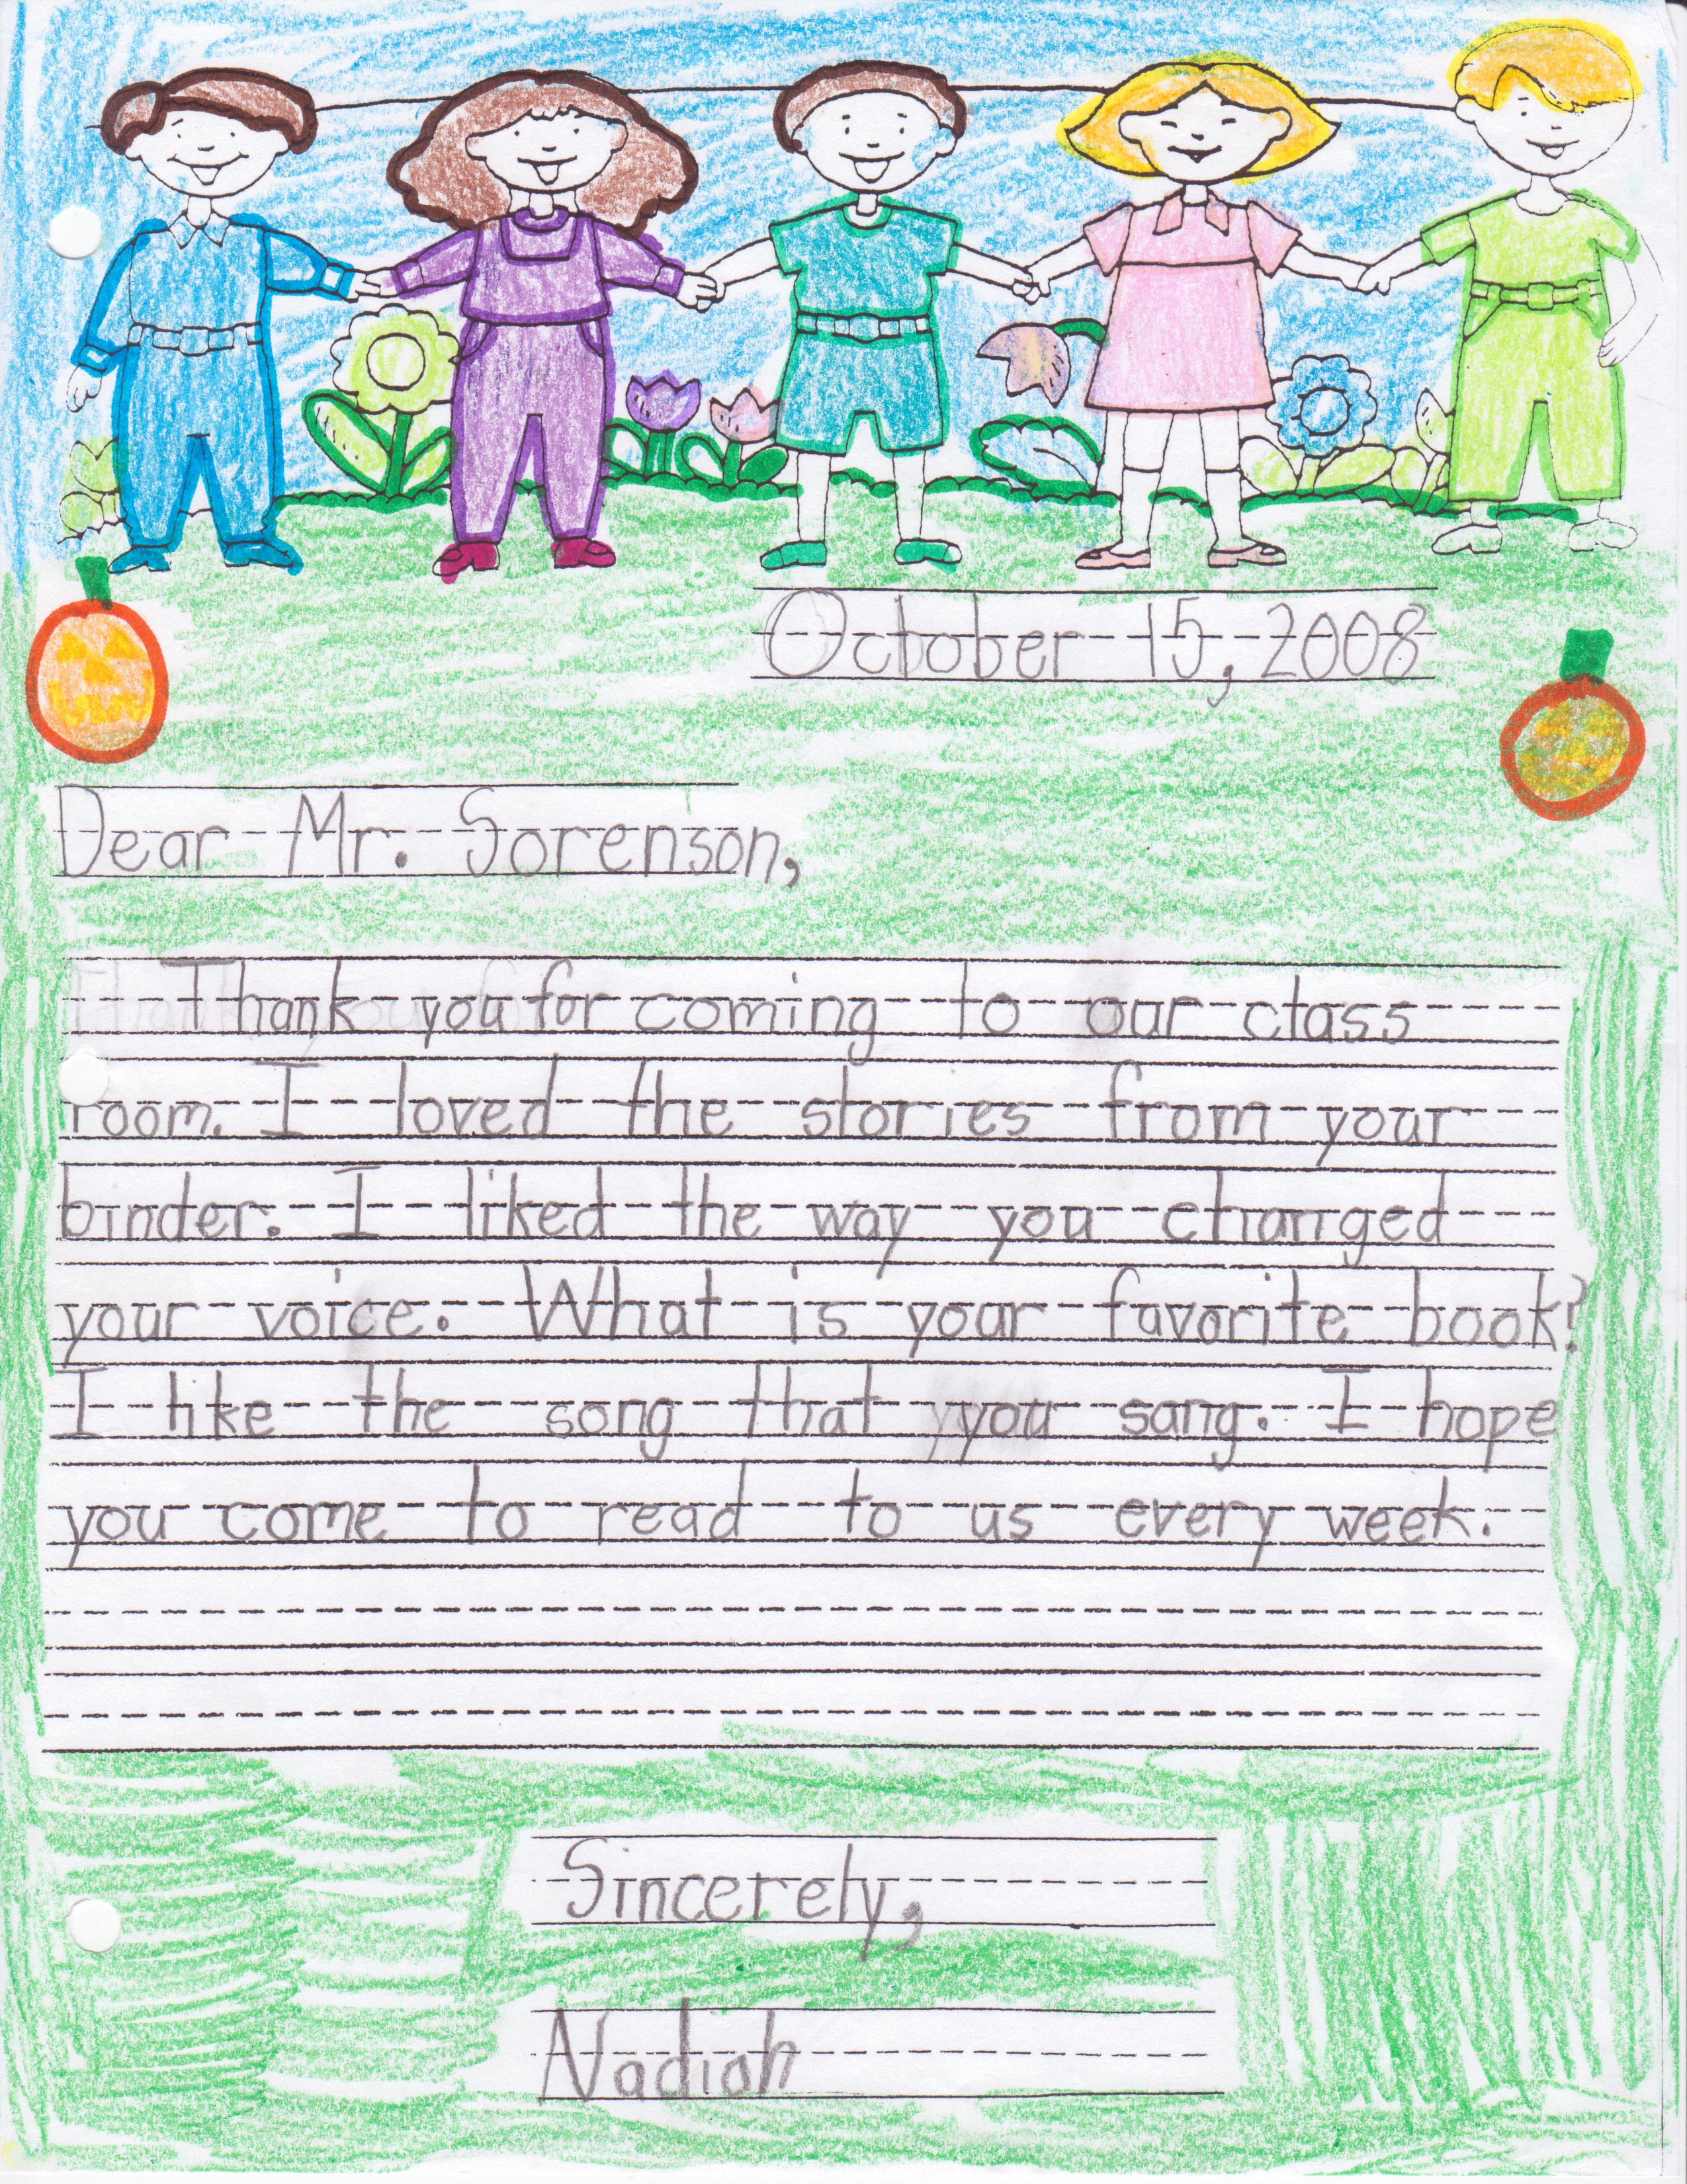 October 15, 2008
Dear Mr. Sorenson,
Thank you for coming to our class
room. I loved the stories from your
binder. I liked the way you changed
your voice. What is your favorite book?
I like the song that you sang. I hope
you come to read to us every week.
Sincerely,
Nadiah